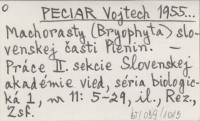 PECIAR Vojtech 1955...
Machorasty (Bryophyta) slo-
venskej časti Pienin. —
Práce II. sekcie Slovenskej
akadémie vied, séria biologic-
ká 1, nr 11: 5-29, il., Rez.,
Zsf.